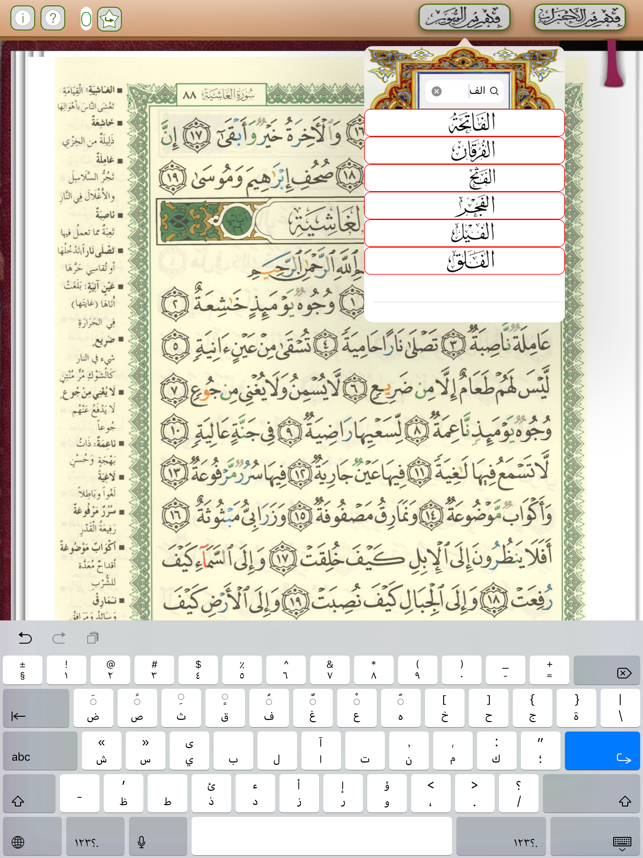 فهرس السور
فهرس الأحزاب
الف
الفَاتِحَةُ
الفُرْقَان
الفَتْحُ
الفَجْر
الفِيل
الفَلَق
سُورَةُ الغَاشِيَةِ ٨٨
١٦ وَالْآخِرَةُ خَيْرٌ وَأَبْقَىٰ ١٧ إِنَّ
١٨ صُحُفِ إِبْرَاهِيمَ وَمُوسَىٰ ١٩
الغَاشِيَة
اللَّهِ الرَّحْمَٰنِ الرَّحِيمِ
١ وُجُوهٌ يَوْمَئِذٍ خَاشِعَةٌ ٢
عَامِلَةٌ نَّاصِبَةٌ ٣ تَصْلَىٰ نَارًا حَامِيَةً ٤ تُسْقَىٰ مِنْ عَيْنٍ آنِيَةٍ ٥
لَّيْسَ لَهُمْ طَعَامٌ إِلَّا مِن ضَرِيعٍ ٦ لَّا يُسْمِنُ وَلَا يُغْنِي مِن جُوعٍ ٧
وُجُوهٌ يَوْمَئِذٍ نَّاعِمَةٌ ٨ لِّسَعْيِهَا رَاضِيَةٌ ٩ فِي جَنَّةٍ عَالِيَةٍ ١٠
لَّا تَسْمَعُ فِيهَا لَاغِيَةً ١١ فِيهَا عَيْنٌ جَارِيَةٌ ١٢ فِيهَا سُرُرٌ مَّرْفُوعَةٌ ١٣
وَأَكْوَابٌ مَّوْضُوعَةٌ ١٤ وَنَمَارِقُ مَصْفُوفَةٌ ١٥ وَزَرَابِيُّ مَبْثُوثَةٌ ١٦
أَفَلَا يَنظُرُونَ إِلَى الْإِبِلِ كَيْفَ خُلِقَتْ ١٧ وَإِلَى السَّمَاءِ كَيْفَ
رُفِعَتْ ١٨ وَإِلَى الْجِبَالِ كَيْفَ نُصِبَتْ ١٩ وَإِلَى الْأَرْضِ كَيْفَ
■ الغَاشِيَة: الْقِيَامَةِ
تَغْشَى النَّاسَ بِأَهْوَالِهَا
■ خَاشِعَةٌ
ذَلِيلَةٌ مِنَ الخِزْيِ
■ عَامِلَةٌ
تَجُرُّ السَّلَاسِلَ
وَالأَغْلَالَ فِي النَّارِ
■ نَاصِبَةٌ
تَعِبَةٌ مما تعملُ فيها
■ تَصْلَى نَاراً: تَدْخُلُهَا
أو تُقَاسِي حَرَّهَا
■ عَيْنٍ آنِيَةٍ: بَلَغَتْ
أَنَاهَا (غايتها)
فِي الحَرَارَةِ
■ ضَرِيعٍ
شيء في النار
كَالشَّوْكِ مُرٍّ مُنْتِنٍ
■ لا يُغْنِي مِن جُوعٍ
لَا يَدْفَعُ عَنْهُم
جُوعاً
■ نَاعِمَةٌ: ذَاتُ
بَهْجَةٍ وَحُسْنٍ
■ لَاغِيَةً
لَغْواً وَبَاطِلاً
■ سُرُرٌ مَرْفُوعَةٌ
رَفِيعَةُ الْقَدْرِ
■ أَكْوَابٌ مَوْضُوعَةٌ
أقداحٌ مُعَدَّةٌ
لِلشُّرْبِ
■ نَمَارِقُ
وَسَائِدُ وَمَرَافِقُ
± § ! ١ @ ٢ # ٣ $ ٤ ٪ ٥ ^ ٦ & ٧ * ٨ ) ٩ ( ٠ _ - + =
ض ص ث ق ف غ ع ه [ خ ] ح { ج } ة | \
abc « ش » س ى ي ب ل آ ا ت ن م : ك " ؛
ـ ظ ط ئ ذ ء د أ ز إ ر ؤ و < ، > . ؟ /
.؟١٢٣ .؟١٢٣